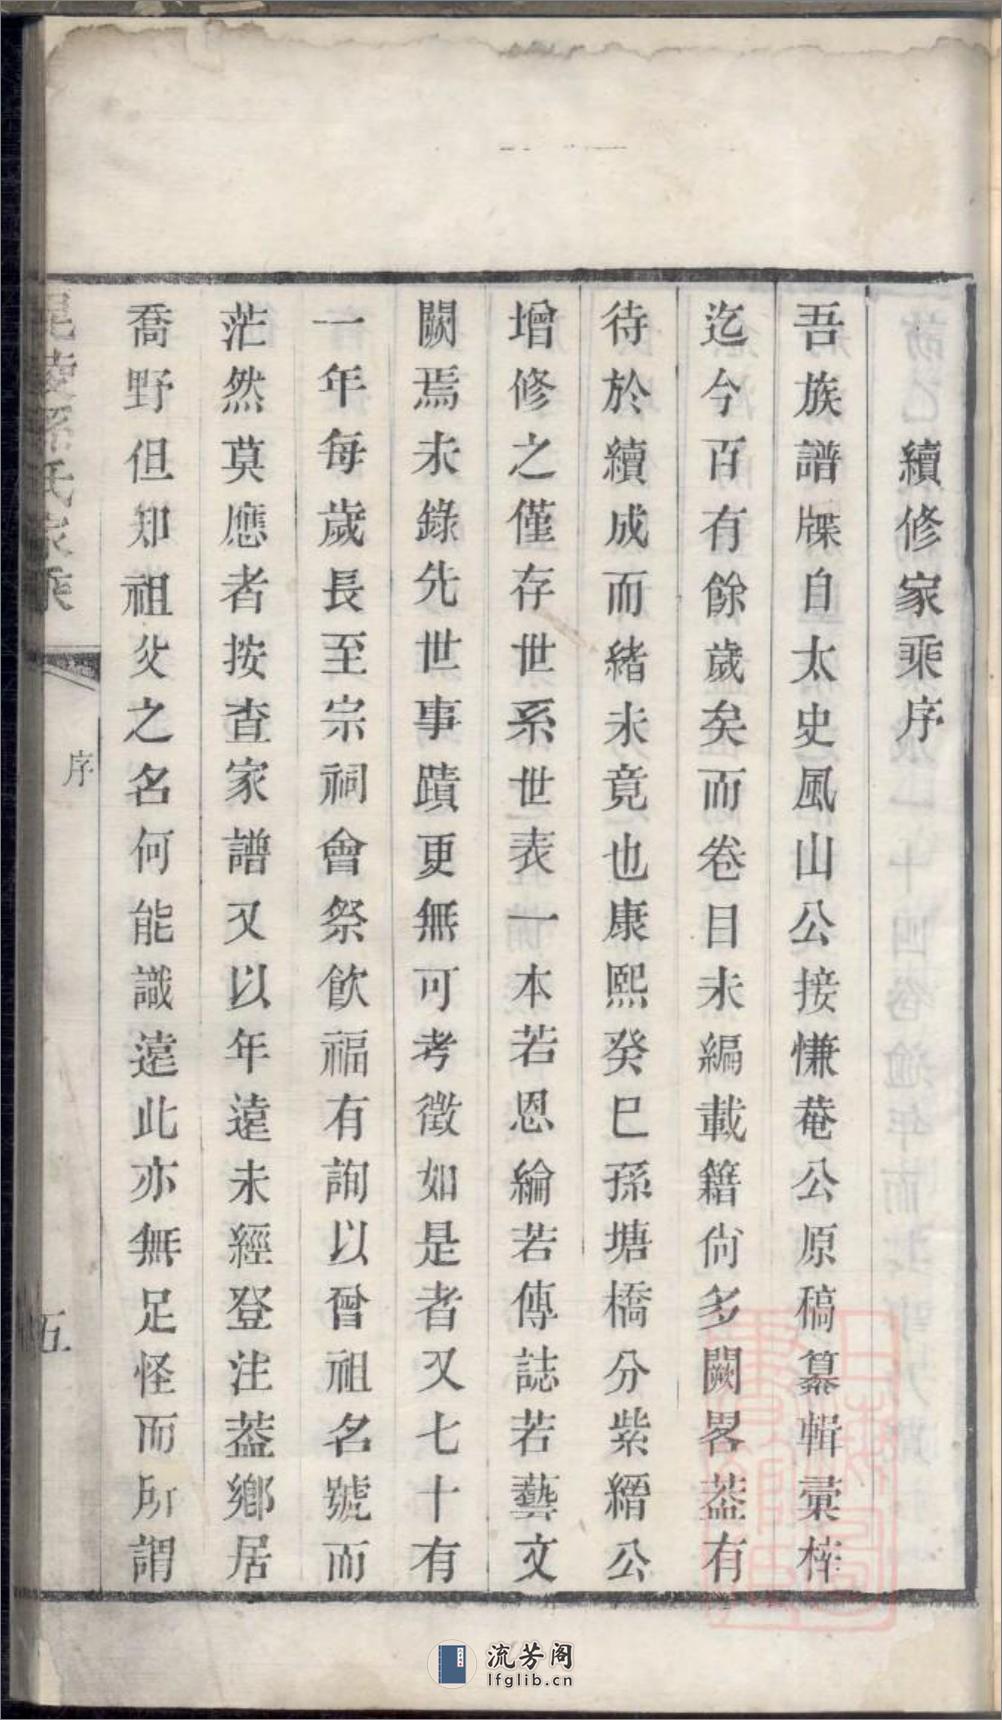 續修家乘序
吾族譜牒自太史風山公接慊菴公原稿纂輯彙梓
迄今百有餘歲矣而卷目未編載籍尙多闕畧葢有
待於續成而緒未竟也康熙癸巳孫塘橋分紫縉公
增修之僅存世系世表一本若恩綸若傳誌若藝文
闕焉未錄先世事蹟更無可考徵如是者又七十有
一年每歲長至宗祠會祭飮福有詢以曾祖名號而
茫然莫應者按查家譜又以年遠未經登注葢鄉居
喬野但知祖父之名何能識遠此亦無足怪而所謂
毘陵孫氏家乘
序
五
流芳阁
lfglib.cn